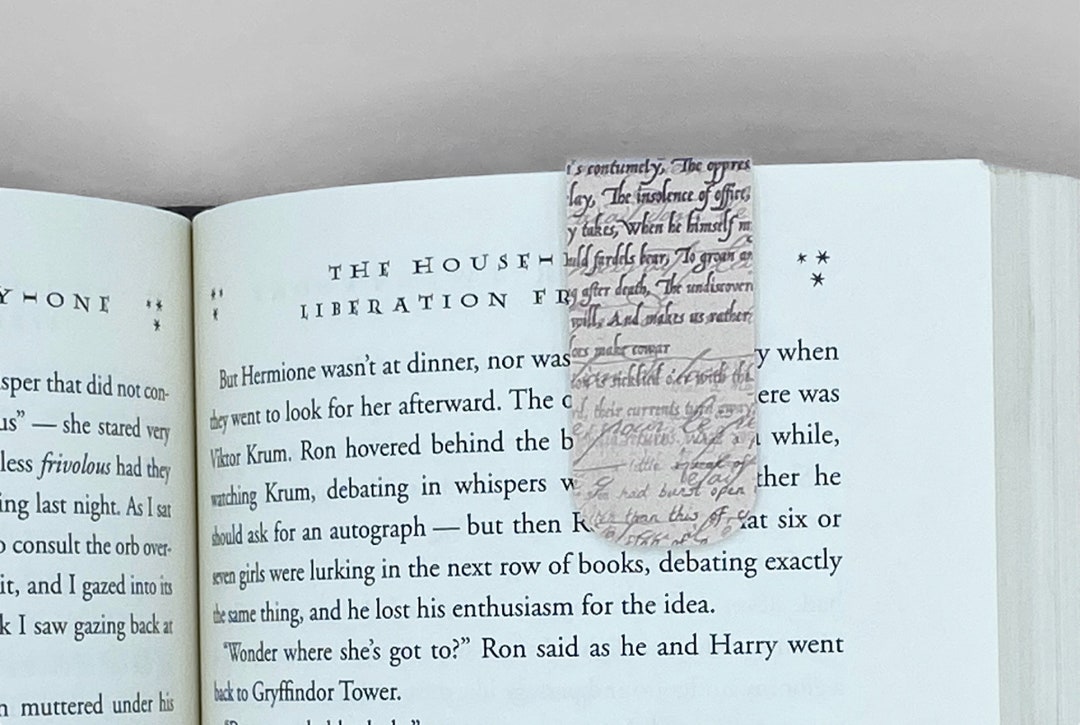 THE HOUSE-
LIBERATION FR
But Hermione wasn't at dinner, nor was
y when
they went to look for her afterward. The
ere was
Viktor Krum. Ron hovered behind the b
while,
watching Krum, debating in whispers w
ther he
should ask for an autograph — but then R
at six or
seven girls were lurking in the next row of books, debating exactly
the same thing, and he lost his enthusiasm for the idea.
"Wonder where she's got to?" Ron said as he and Harry went
back to Gryffindor Tower.
's contumely, The oppres
lay, The insolence of office,
y takes, When he himself m
uld fardels bear, To groan an
after death, The undiscover
will, And makes us rather
make cowar
sicklied o'er with th
their currents turn away
little
had burst open
than this of
Y-ONE
sper that did not con-
us" — she stared very
less frivolous had they
ing last night. As I sat
o consult the orb over-
it, and I gazed into its
k I saw gazing back at
n muttered under his